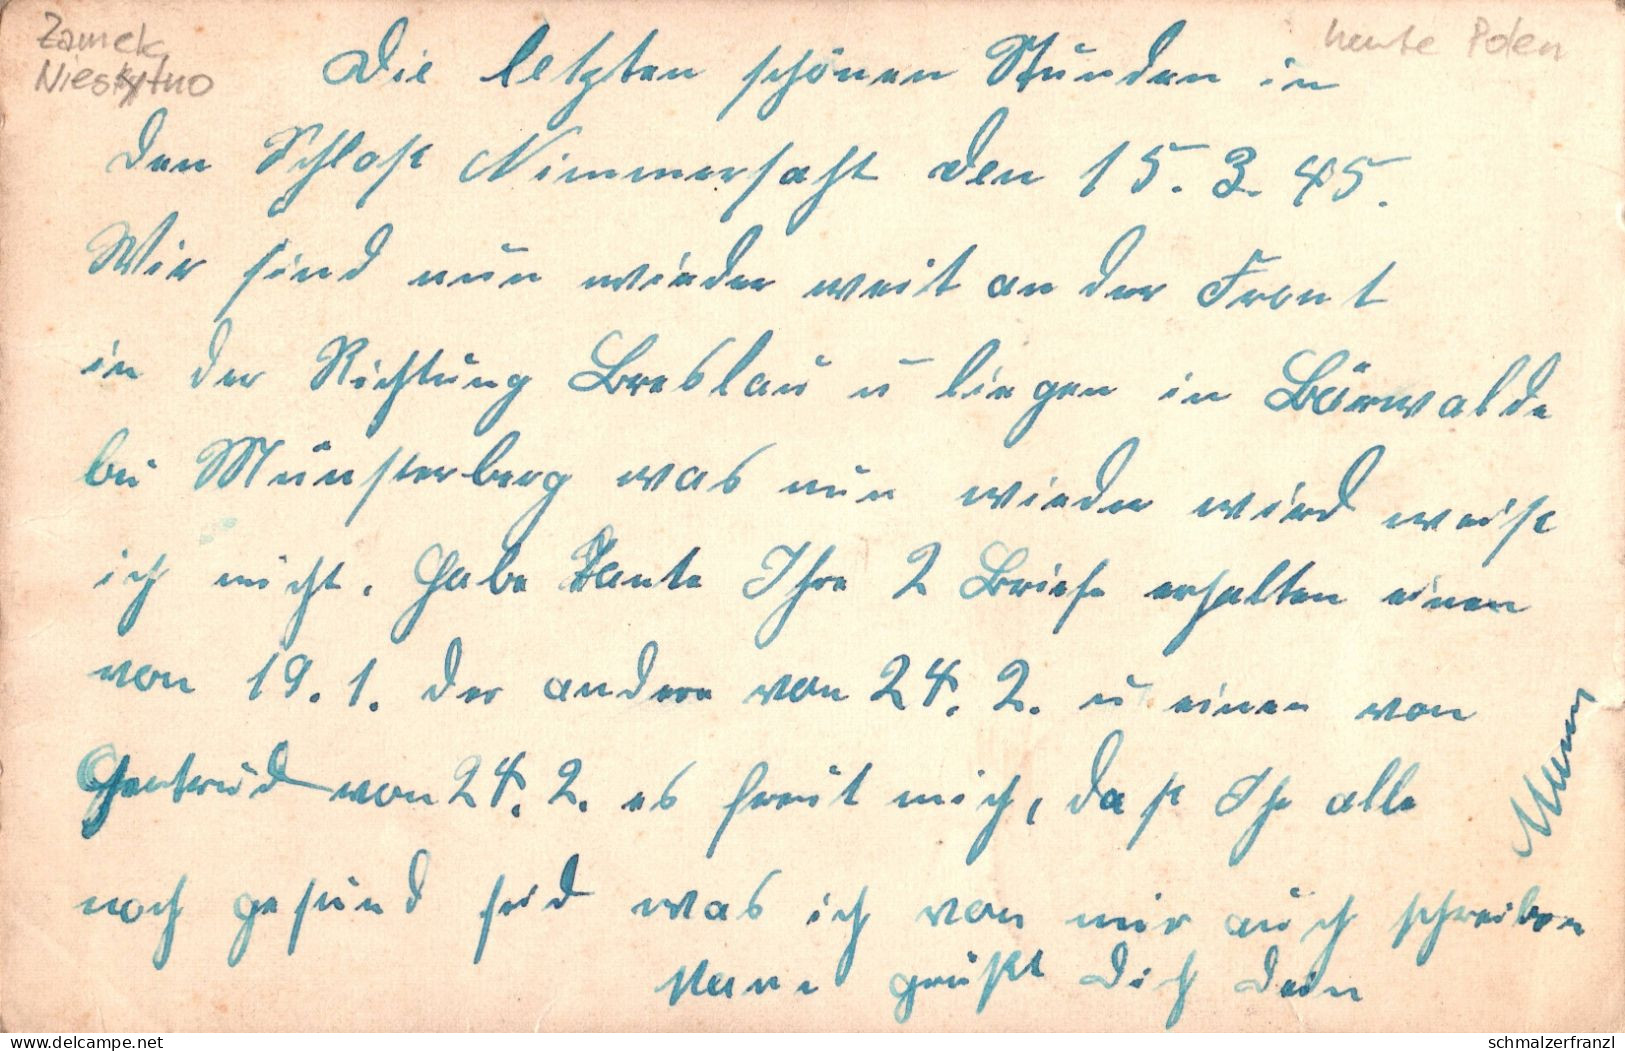 Zamek
Niesytno
heute Polen
Die letzten schönen Stunden in
den Schloß Nimmersaht den 15. 3. 45.
Wir sind nun wieder weit an der Front
in der Richtung Breslau u liegen in Bärwalde
bei Münsterberg was nun wieder wird weiß
ich nicht. Habe Tante Ihre 2 Briefe erhalten einen
von 19. 1. der andere von 24. 2. u einen von
Gertrud von 24. 2. es freut mich, daß Ihr alle
noch gesund seid was ich von mir auch schreiben
kann grüßt Dich Dein
www.delcampe.net
schmalzerfranzl